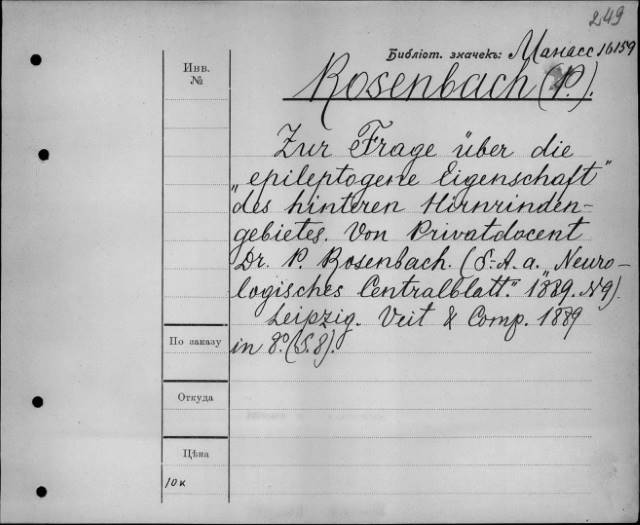 249
Библіот. значекъ: Манасс 16159
Инв.
№
Rosenbach (P.).
Zur Frage über die
„epileptogene Eigenschaft"
des hinteren Hirnrinden-
gebietes. Von Privatdocent
Dr. P. Rosenbach. (S.-A. a. „Neuro-
logisches Centralblatt." 1889. №9).
Leipzig. Veit & Comp. 1889
in 8º. (S. 8).
По заказу
Откуда
Цѣна
10 к